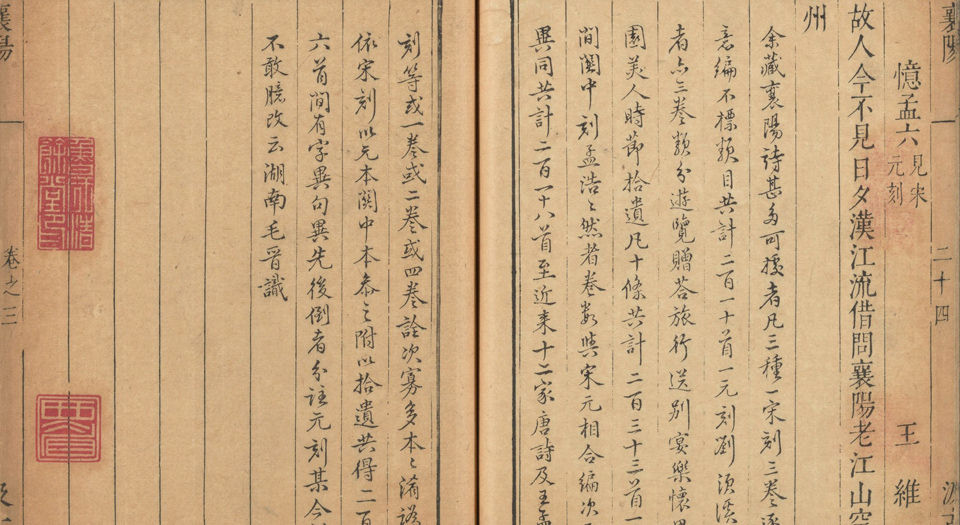 襄陽
二十四
憶孟六 見宋元刻 王維
故人今不見日夕漢江流借問襄陽老江山空
州
余藏襄陽詩甚多可據者凡三種一宋刻三卷逐
意編不標類目共計二百一十首一元刻劉須溪
者亦三卷類分遊覽贈荅旅行送別宴樂懷
園美人時節拾遺凡十條共計二百三十三首一
間關中刻孟浩〻然者卷数與宋元相合編次
異同共計二百一十八首至近来十二家唐詩及王孟
刻等或一卷或二卷或四卷詮次寡多本〻淆譌
依宋刻以元本關中本叅之附以拾遺共得二百
六首間有字異句異先後倒者分註元刻某今
不敢臆改云湖南毛晋識
襄陽
卷之三